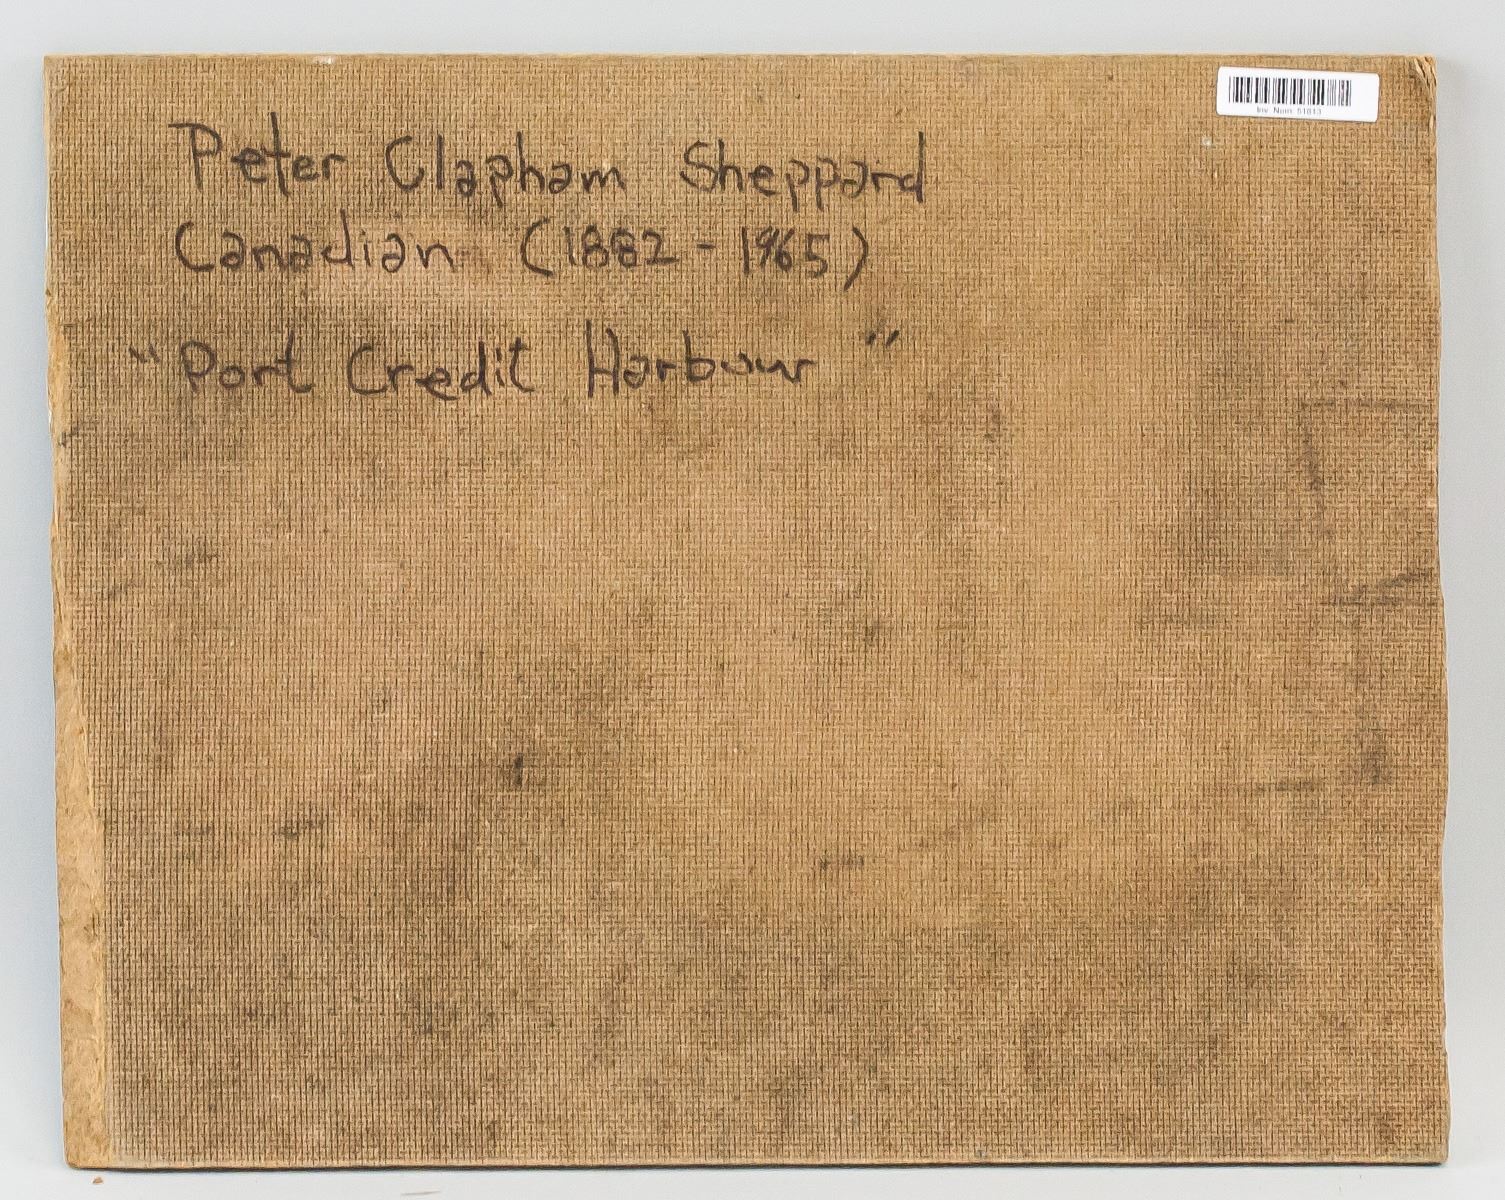 Peter Clapham Sheppard
Canadian (1882 - 1965)
"Port Credit Harbour"
Inv. Num. 51813